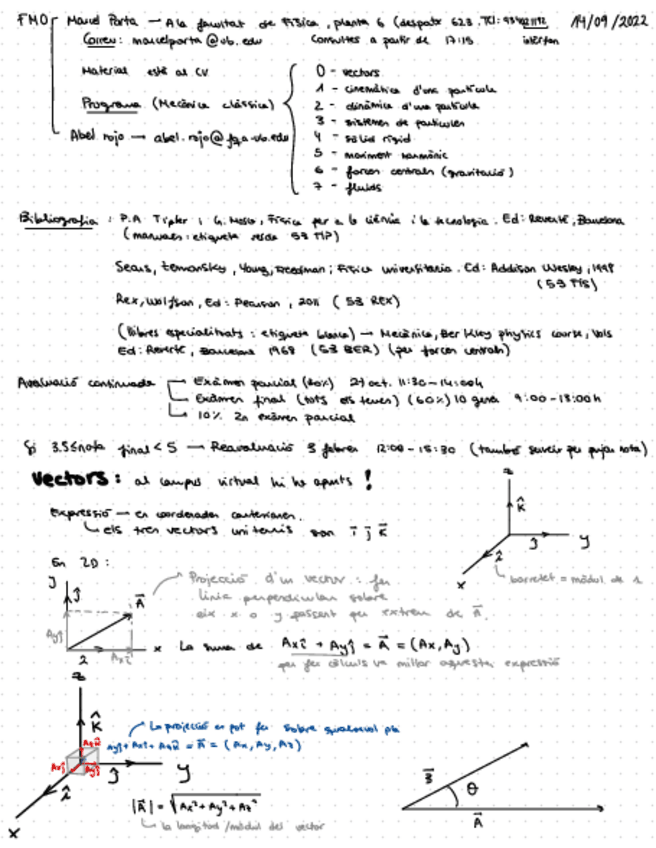 FMO Manel Porta — A la facultat de Física, planta 6 (despatx 623. 14/09/2022
Correu: manelporta@ub.edu Consultes a partir de 17:15
Material està al CV
Programa (Mecànica clàssica)
0 - vectors
1 - cinemàtica d'una partícula
2 - dinàmica d'una partícula
3 - sistemes de partícules
4 - sòlid rígid
5 - moviment harmònic
6 - forces centrals (gravitació)
7 - fluids
Abel rojo — abel.rojo@fqa.ub.edu
Bibliografia: P.A. Tipler i G. Mosca, Física per a la ciència i la tecnologia. Ed: Reverté, Barcelona
(manuals: etiqueta verda 53 TIP)
Sears, Zemansky, Young, Freedman; Física universitaria. Ed: Addison Wesley, 1998
Rex, Wolfson, Ed: Pearson, 2011 (53 REX)
(llibres especialitzats: etiqueta blanca) — Mecànica, Berkley physics course, Vol1
Ed: Reverté, Barcelona 1968 (53 BER) (per forces centrals)
Avaluació continuada
Exàmen parcial (30%) 27 oct. 11:30-14:00h
Exàmen final (tots els temes) (60%) 10 gener 9:00-13:00h
10% 2n exàmen parcial
Si 3.5≤nota final<5 — Reavaluació 3 febrer 12:00-15:30 (també serveix per pujar nota)
Vectors: al campus virtual hi ha apunts!
Expressió — en coordenades cartesianes.
els tres vectors unitaris són i j k
z
k̂
ĵ y
î
x barret = mòdul de 1
En 2D:
y
ĵ
A⃗
Ayĵ
Axî x
Projecció d'un vector: fer
línia perpendicular sobre
eix x o y passant per extrem de A⃗.
La suma de Axî + Ayĵ = A⃗ = (Ax, Ay)
per fer càlculs va millor aquesta expressió
z
k̂
La projecció es pot fer sobre qualsevol pla
Ayĵ + Axî + Azk̂ = A⃗ = (Ax, Ay, Az)
Azk̂
Axî Ayĵ
ĵ y
î
x
|A⃗| = √Ax²+Ay²+Az²
la longitud/mòdul del vector
B⃗
θ
A⃗